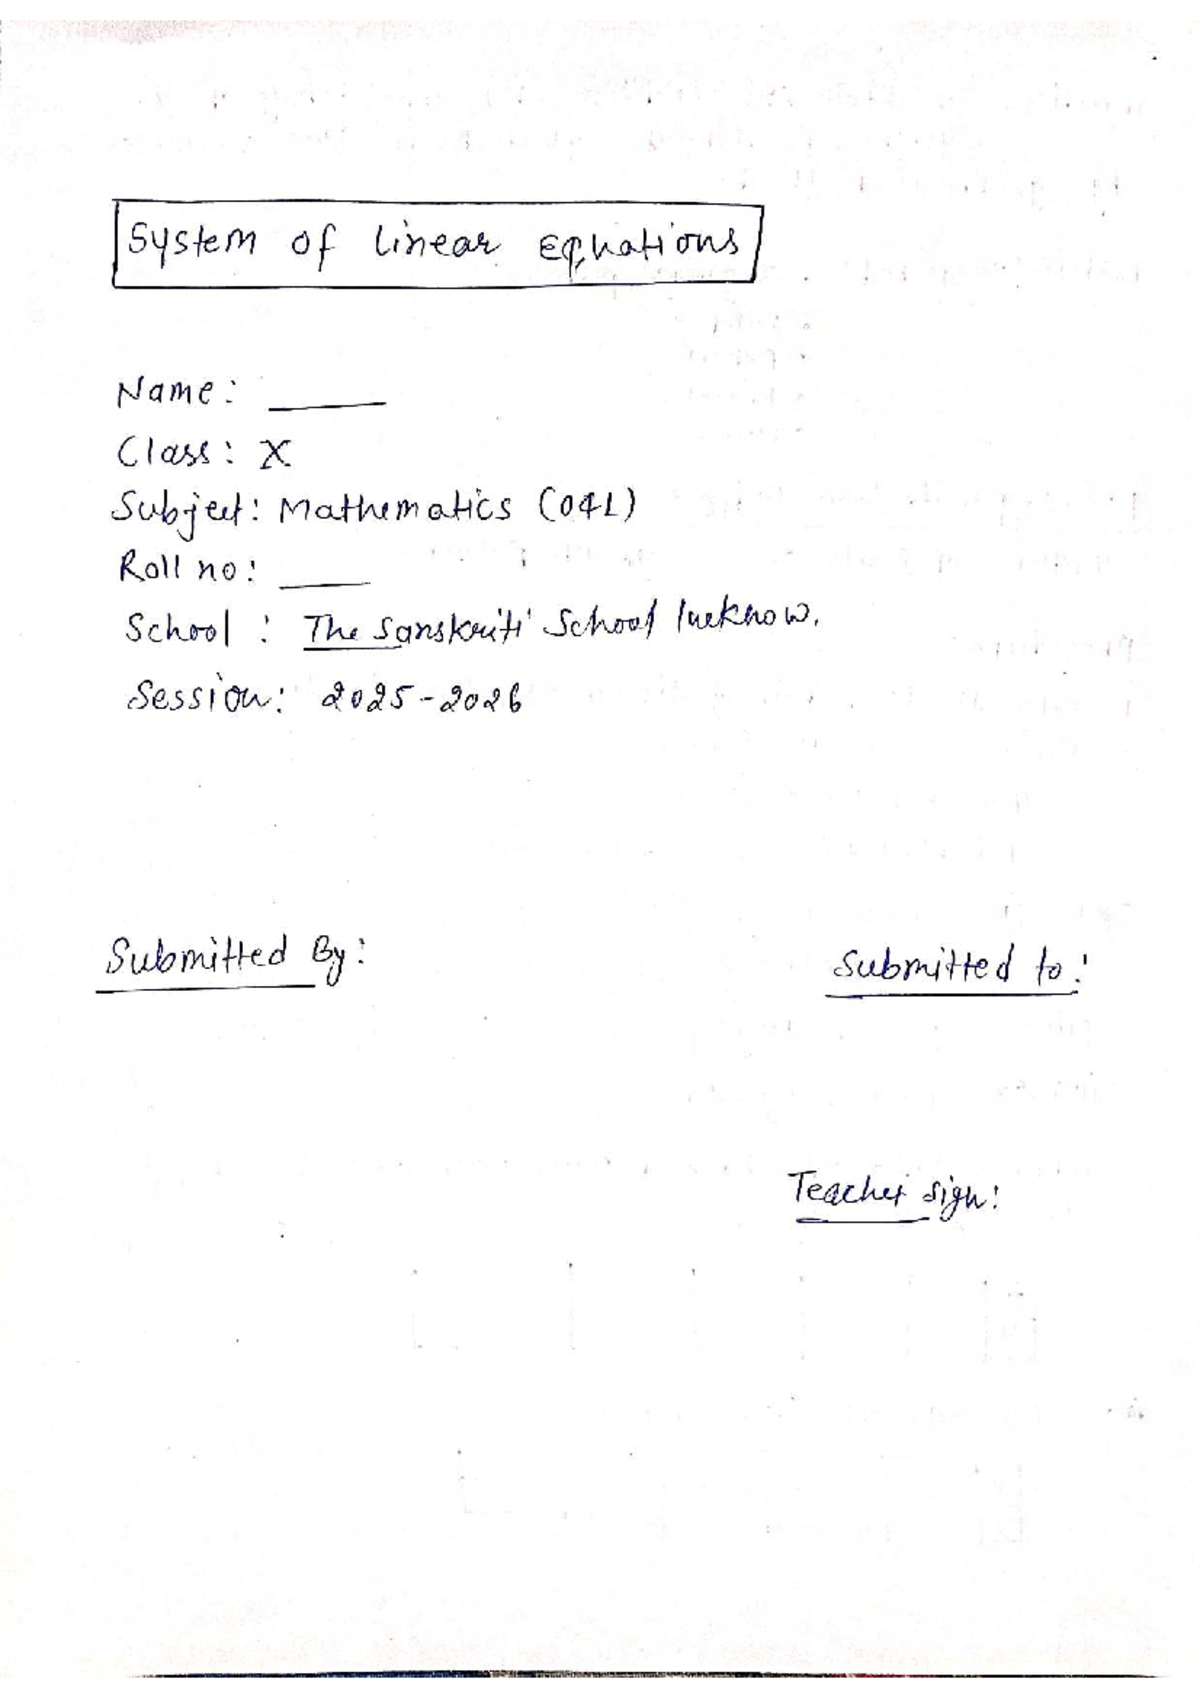 System of linear Equations
Name: _____
Class: X
Subject: Mathematics (041)
Roll no: ____
School : The Sanskriti School lucknow.
Session: 2025-2026
Submitted By:
Submitted to:
Teacher sign: